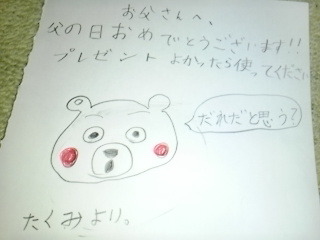 お父さんへ。
父の日おめでとうございます!!
プレゼントよかったら使ってください
だれだと思う?
たくみより。